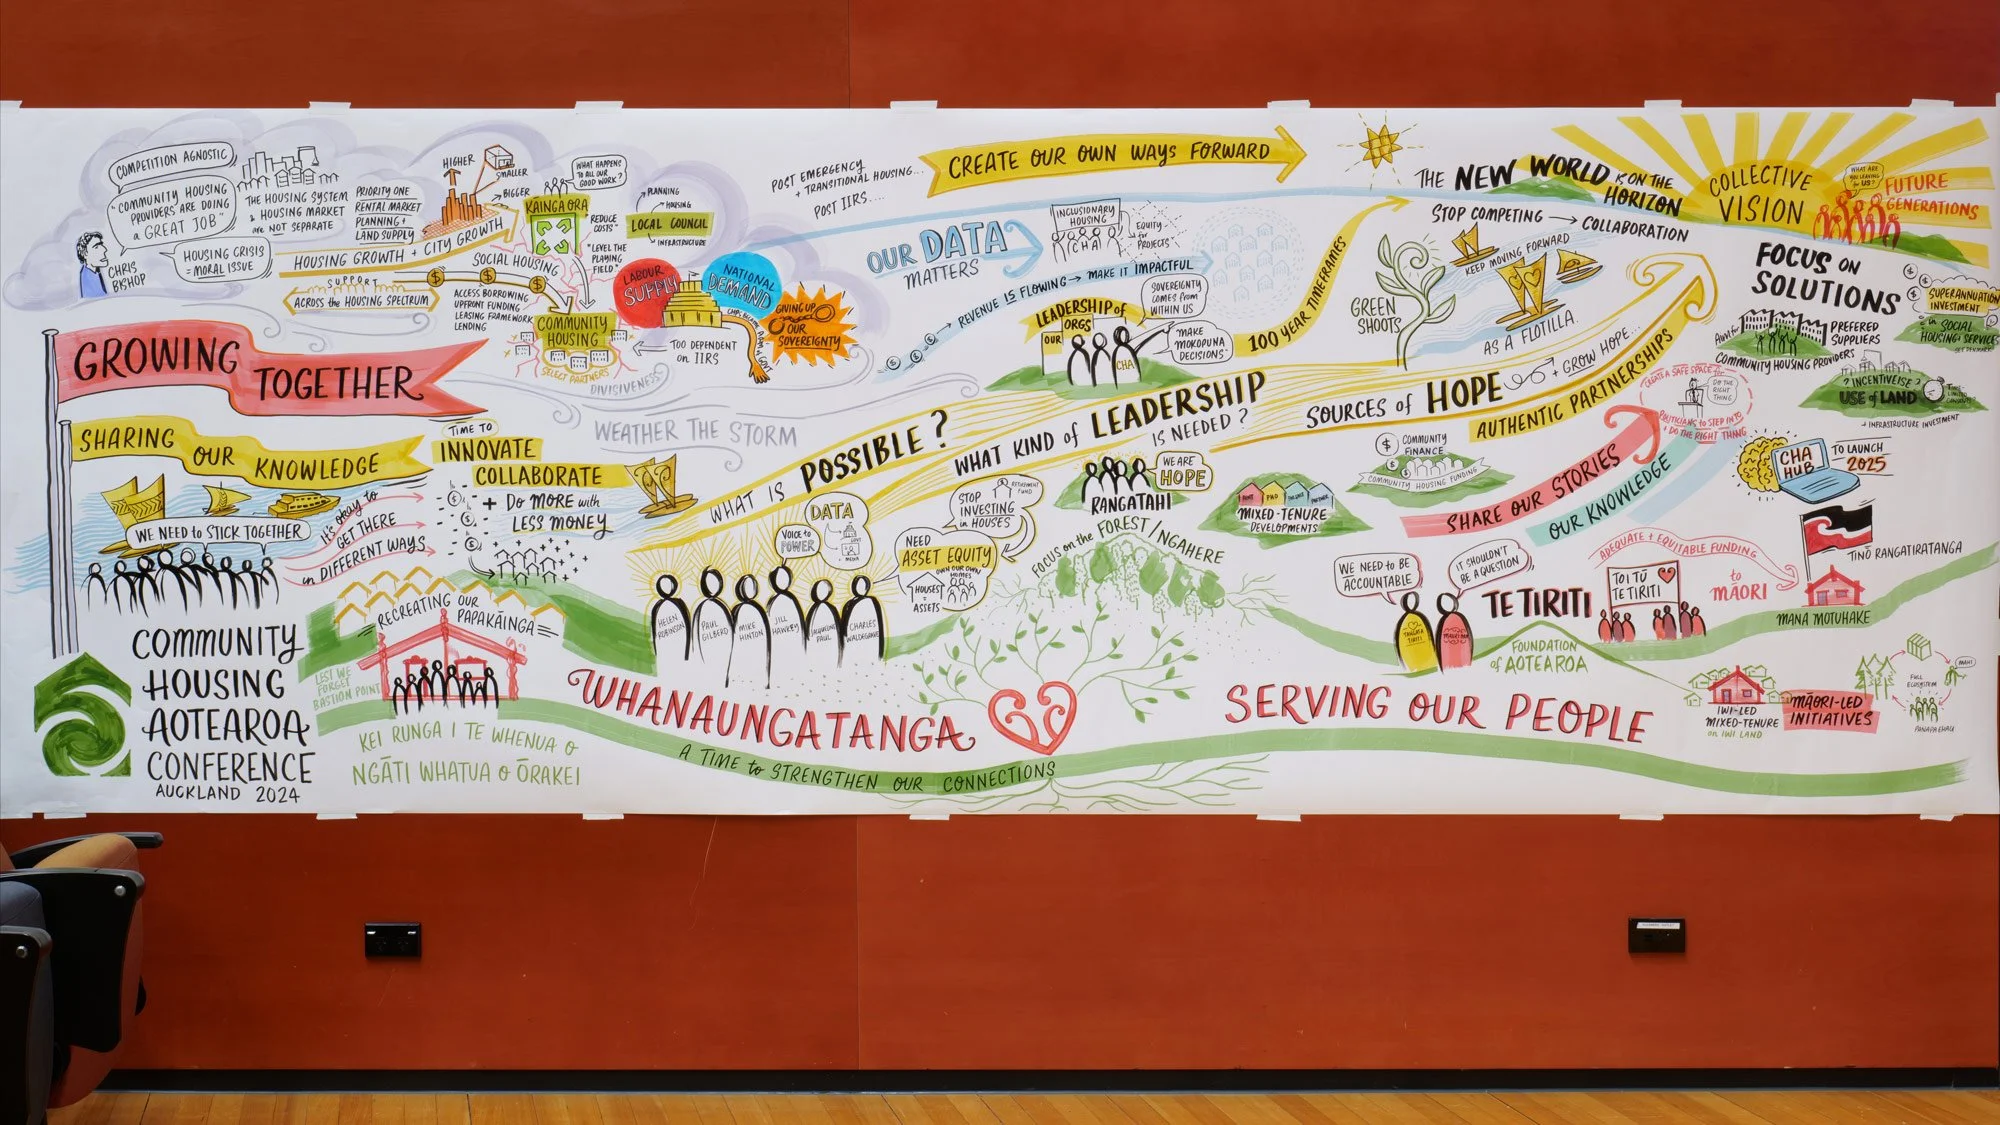 COMPETITION AGNOSTIC
"COMMUNITY HOUSING
PROVIDERS ARE DOING
a GREAT JOB"
HOUSING CRISIS
= MORAL ISSUE
CHRIS
BISHOP
THE HOUSING SYSTEM
& HOUSING MARKET
are NOT SEPARATE
PRIORITY ONE
RENTAL MARKET
PLANNING +
LAND SUPPLY
HIGHER
SMALLER
BIGGER
HOUSING GROWTH + CITY GROWTH
SUPPORT
ACROSS the HOUSING SPECTRUM
WHAT HAPPENS
TO ALL OUR
GOOD WORK?
KAINGA ORA
REDUCE
COSTS"
"LEVEL THE
PLAYING
FIELD"
SOCIAL HOUSING
ACCESS BORROWING
UPFRONT FUNDING
LEASING FRAMEWORK
LENDING
PLANNING
HOUSING
LOCAL COUNCIL
INFRASTRUCTURE
COMMUNITY
HOUSING
SELECT PARTNERS
DIVISIVENESS
TOO DEPENDENT
on IIRS
LABOUR
SUPPLY
NATIONAL
DEMAND
GIVING UP
OUR
SOVEREIGNTY
GROWING
TOGETHER
SHARING
OUR KNOWLEDGE
WE NEED to STICK TOGETHER
it's okay to
GET THERE
in DIFFERENT WAYS
TIME TO
INNOVATE
COLLABORATE
+ DO MORE with
LESS MONEY
WEATHER THE STORM
COMMUNITY
HOUSING
AOTEAROA
CONFERENCE
AUCKLAND 2024
RECREATING OUR
PAPAKĀINGA
LEST WE
FORGET
BASTION POINT
KEI RUNGA I TE WHENUA O
NGĀTI WHATUA O ŌRAKEI
POST EMERGENCY
+ TRANSITIONAL HOUSING...
POST IIRS....
CREATE OUR OWN WAYS FORWARD
OUR DATA
MATTERS
INCLUSIONARY
HOUSING
CHA
EQUITY
for
PROJECTS
REVENUE IS FLOWING → MAKE IT IMPACTFUL
LEADERSHIP of
OUR
ORGS
CHA
SOVEREIGNTY
COMES FROM
WITHIN US
"MAKE
MOKOPUNA
DECISIONS"
100 YEAR TIMEFRAMES
WHAT IS POSSIBLE?
WHAT KIND of LEADERSHIP
IS NEEDED?
SOURCES of HOPE
+ GROW HOPE...
AUTHENTIC PARTNERSHIPS
VOICE to
POWER
DATA
MEDIA
HELEN
ROBINSON
PAUL
GILBERD
MIKE
HINTON
JILL
HAWKEY
JACQUELINE
PAUL
CHARLES
WALDEGRAVE
STOP
INVESTING
in HOUSES
RETIREMENT
FUND
NEED
ASSET EQUITY
OWN OUR OWN
HOMES
HOUSES
ASSETS
WE ARE
HOPE
RANGATAHI
FOCUS on the FOREST / NGAHERE
WHANAUNGATANGA
A TIME to STRENGTHEN OUR CONNECTIONS
SERVING OUR PEOPLE
MIXED-TENURE
DEVELOPMENTS
COMMUNITY
FINANCE
COMMUNITY HOUSING FUNDING
GREEN
SHOOTS
THE NEW WORLD IS ON THE
HORIZON
STOP COMPETING → COLLABORATION
KEEP MOVING FORWARD
AS A FLOTILLA.
COLLECTIVE
VISION
WHAT ARE
YOU LEAVING
for US?
FUTURE
GENERATIONS
FOCUS ON
SOLUTIONS
SUPERANNUATION
INVESTMENT
in SOCIAL
HOUSING + SERVICES
PREFERED
SUPPLIERS
COMMUNITY HOUSING PROVIDERS
? INCENTIVISE ?
USE of LAND
+ INFRASTRUCTURE INVESTMENT
CREATE A SAFE SPACE for
DO THE
RIGHT
THING
POLITICIANS to STEP INTO
+ DO THE RIGHT THING
SHARE OUR STORIES
OUR KNOWLEDGE
CHA
HUB
TO LAUNCH
2025
WE NEED TO BE
ACCOUNTABLE
IT SHOULDN'T
BE A QUESTION
TE TIRITI
FOUNDATION
of AOTEAROA
ADEQUATE + EQUITABLE FUNDING
to
MĀORI
TOI TŪ
TE TIRITI
TINO RANGATIRATANGA
MANA MOTUHAKE
IWI-LED
MIXED-TENURE
on IWI LAND
MĀORI-LED
INITIATIVES
FULL
ECOSYSTEM
MAHI